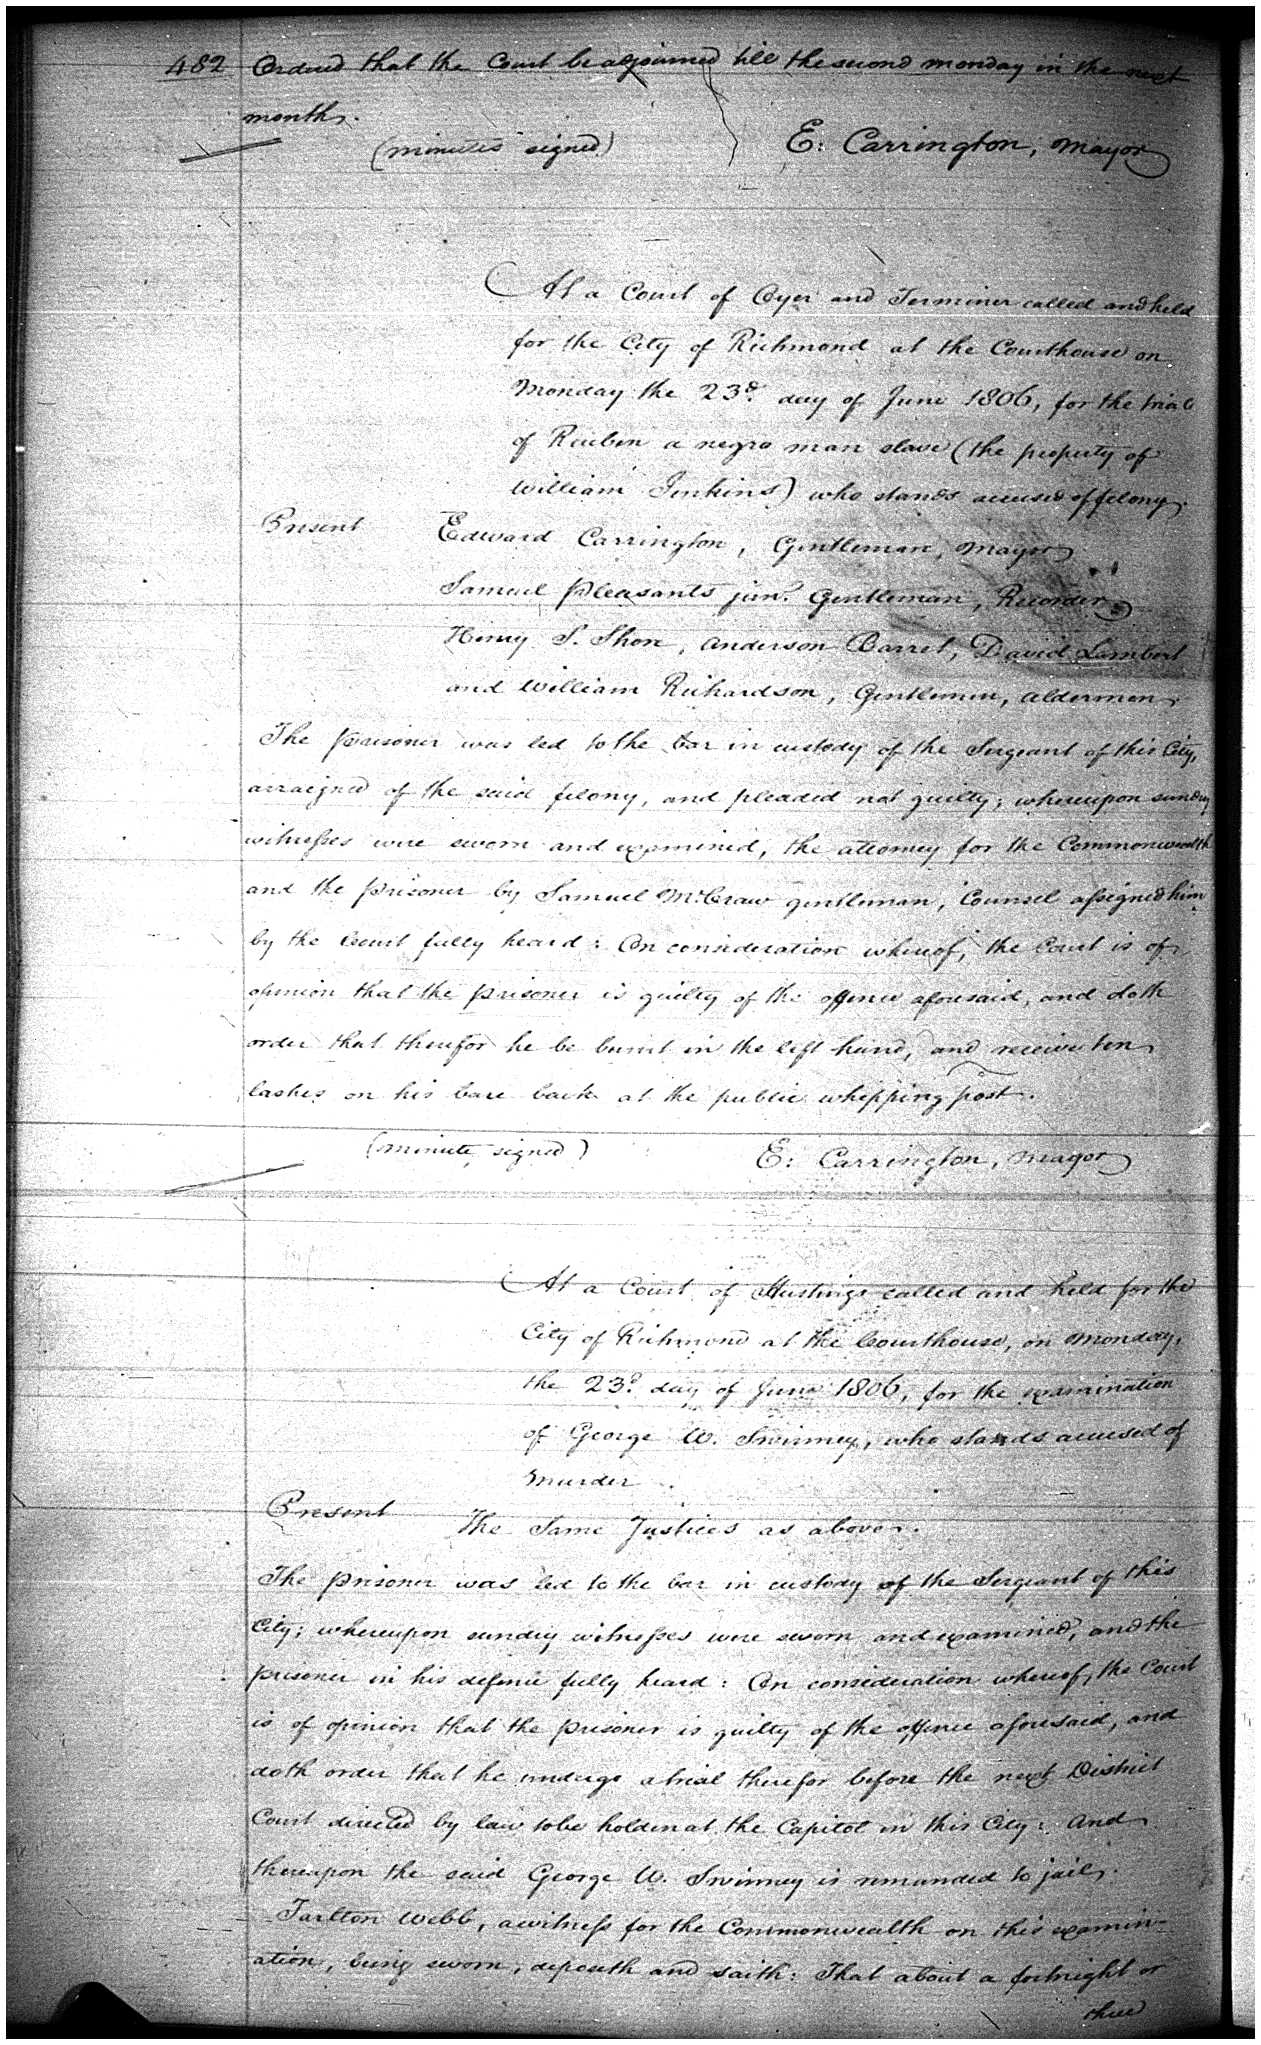 482 Ordered that the Court be adjourned till the second monday in the next
month.
(minutes signed) E: Carrington, Mayor
At a Court of Oyer and Terminer called and held
for the City of Richmond at the Courthouse on
Monday the 23d. day of June 1806, for the trial
of Reuben a negro man slave (the property of
William Jenkins) who stands accused of felony.
Present Edward Carrington, Gentleman, Mayor
Samuel Pleasants junr. Gentleman, Recorder
Henry S. Shore, Anderson Barret, David Lambert
and William Richardson, Gentlemen, Aldermen,
The prisoner was led to the bar in custody of the Sergeant of this City,
arraigned of the said felony, and pleaded not guilty; whereupon sundry
witnesses were sworn and examined, the attorney for the Commonwealth
and the prisoner by Samuel McCraw gentleman, Counsel assigned him
by the Court fully heard: On consideration whereof, the Court is of
opinion that the prisoner is guilty of the offence aforesaid, and doth
order that therefor he be burnt in the left hand, and receive ten
lashes on his bare back at the public whipping post.
(minute signed) E: Carrington, Mayor
At a Court of Hustings called and held for the
City of Richmond at the Courthouse, on Monday,
the 23d. day of June 1806, for the examination
of George W. Swinney, who stands accused of
murder.
Present The Same Justices as above.
The prisoner was led to the bar in custody of the Sergeant of this
City; whereupon sundry witnesses were sworn and examined, and the
prisoner in his defence fully heard: On consideration whereof, the Court
is of opinion that the prisoner is guilty of the offence aforesaid, and
doth order that he undergo a trial therefor before the next District
Court directed by law to be holden at the Capitol in this City: And
thereupon the said George W. Swinney is remanded to jail.
Tarlton Webb, a witness for the Commonwealth on this examin-
ation, being sworn, deposeth and saith: That about a fortnight or
three